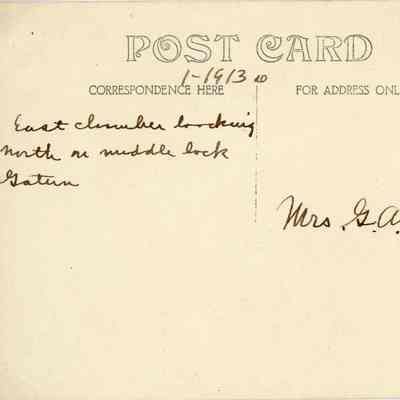 POST CARD
1-1913
CORRESPONDENCE HERE
FOR ADDRESS ONL
East chamber looking
north on middle lock
Gatun
Mrs. G.A.